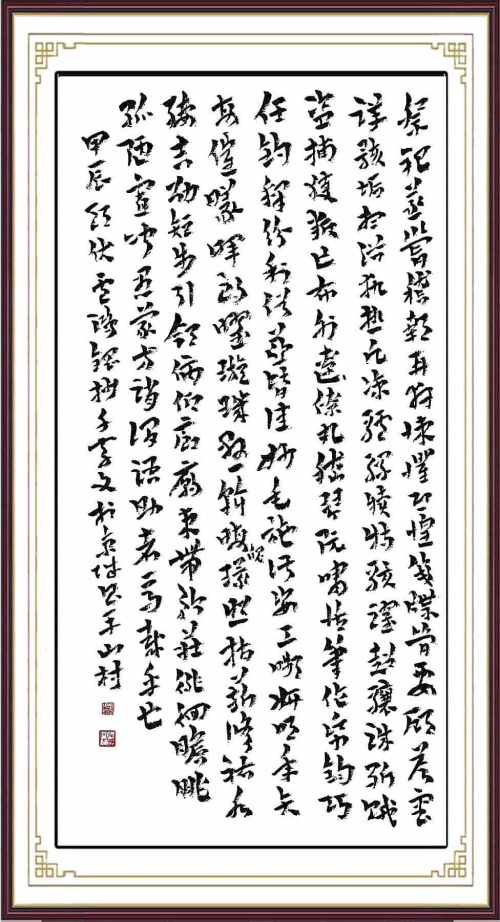 祭祀蒸嘗稽顙再拜悚懼恐惶箋牒簡要顧答審
詳骸垢想浴執熱願凉驢騾犢特駭躍超驤誅斬賊
盜捕獲叛亡布射遼丸嵇琴阮嘯恬筆倫紙鈞巧
任釣釋紛利俗並皆佳妙毛施淑姿工顰妍笑年矢
每催曦暉朗曜璇璣懸斡晦魄環照指薪修祜永
綏吉劭矩步引領俯仰廊廟束帶矜莊徘徊瞻眺
孤陋寡聞愚蒙等誚謂語助者焉哉乎也
甲辰伏千字文於京山村